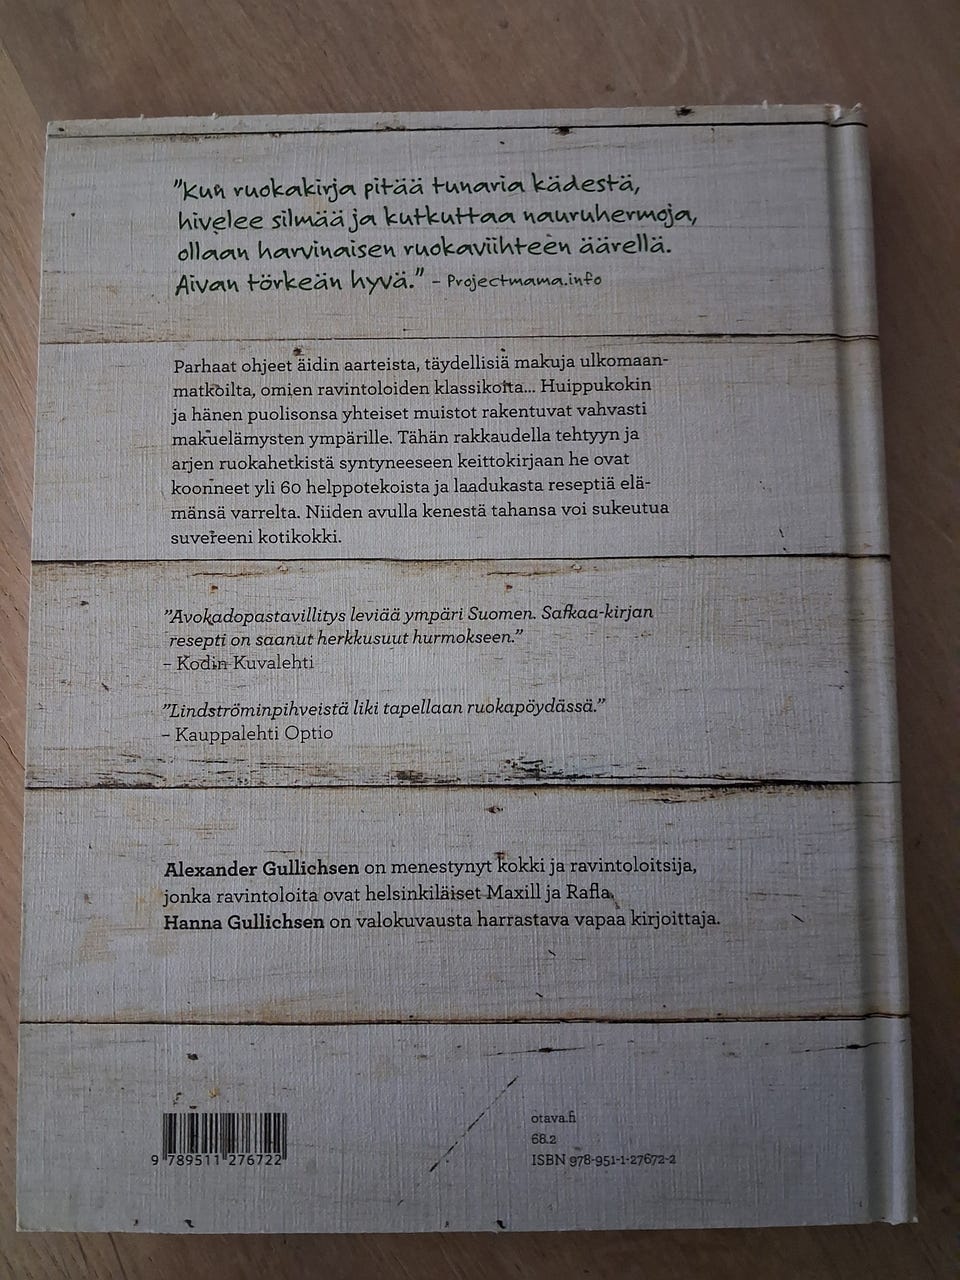 "Kun ruokakirja pitää tunaria kädestä,
hivelee silmää ja kutkuttaa nauruhermoja,
ollaan harvinaisen ruokaviihteen äärellä.
Aivan törkeän hyvä." – Projectmama.info
Parhaat ohjeet äidin aarteista, täydellisiä makuja ulkomaan-
matkoilta, omien ravintoloiden klassikoita... Huippukokin
ja hänen puolisonsa yhteiset muistot rakentuvat vahvasti
makuelämysten ympärille. Tähän rakkaudella tehtyyn ja
arjen ruokahetkistä syntyneeseen keittokirjaan he ovat
koonneet yli 60 helppotekoista ja laadukasta reseptiä elä-
mänsä varrelta. Niiden avulla kenestä tahansa voi sukeutua
suvereeni kotikokki.
"Avokadopastavillitys leviää ympäri Suomen. Safkaa-kirjan
resepti on saanut herkkusuut hurmokseen."
– Kodin Kuvalehti
"Lindströminpihveistä liki tapellaan ruokapöydässä."
– Kauppalehti Optio
Alexander Gullichsen on menestynyt kokki ja ravintoloitsija,
jonka ravintoloita ovat helsinkiläiset Maxill ja Rafla.
Hanna Gullichsen on valokuvausta harrastava vapaa kirjoittaja.
9 789511 276722
otava.fi
68.2
ISBN 978-951-1-27672-2